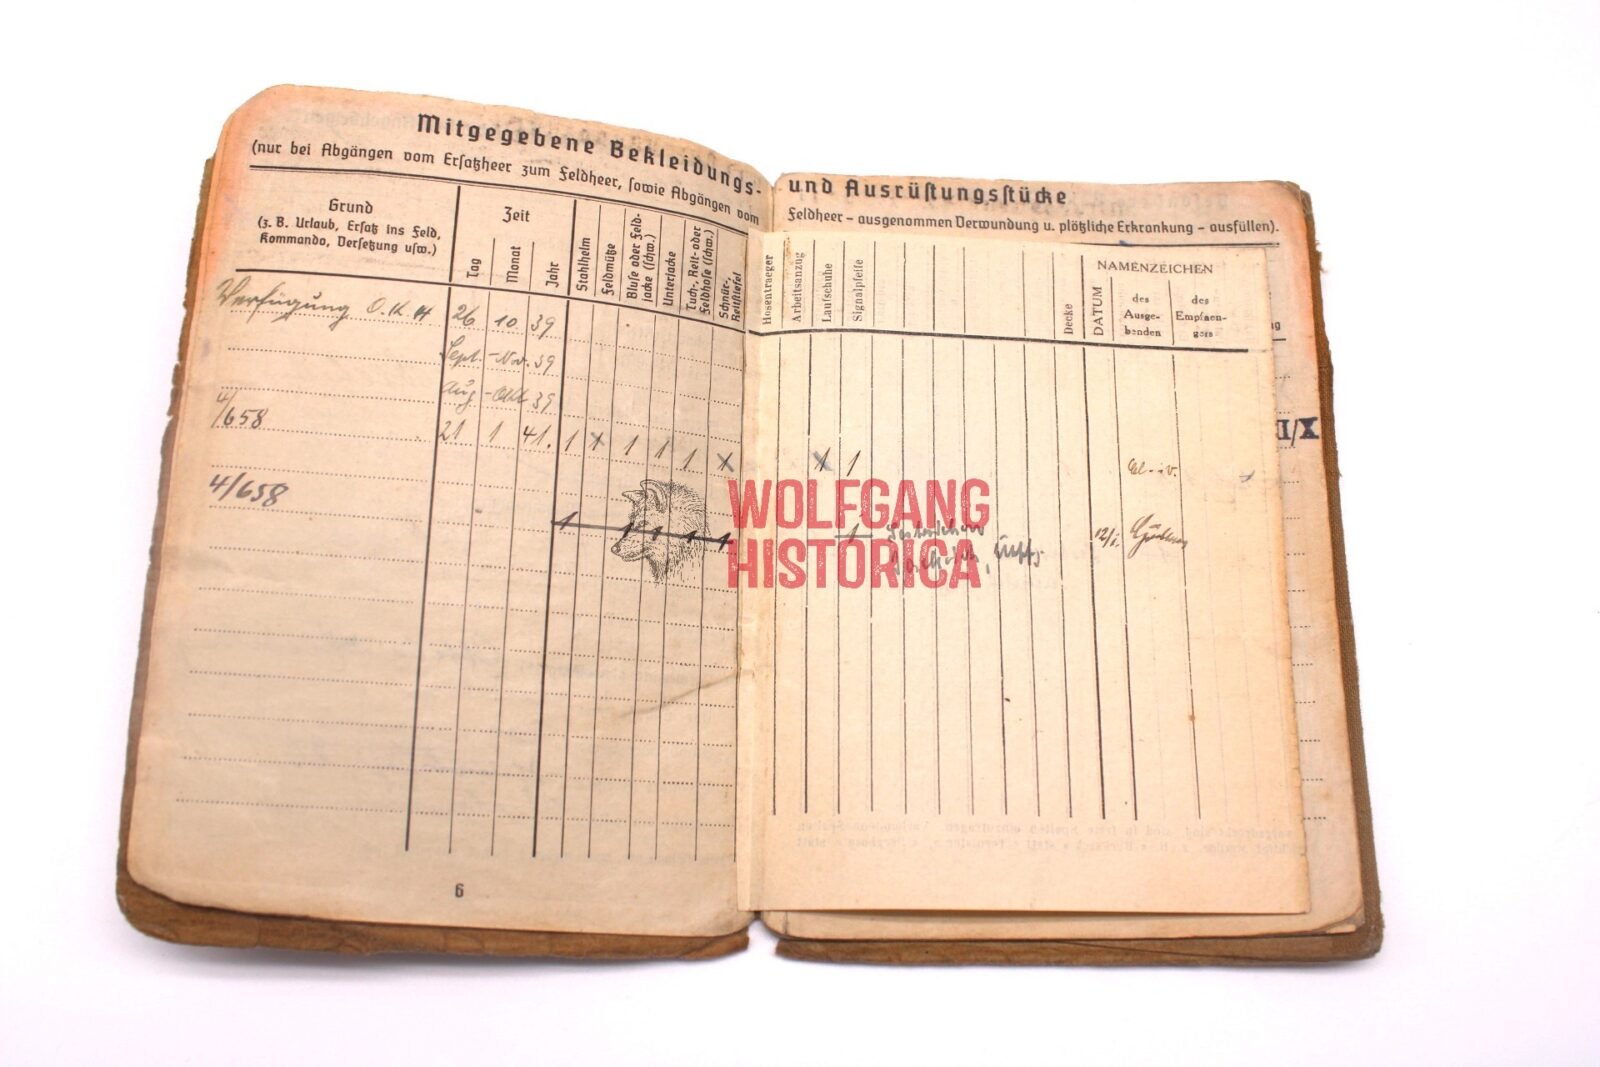 Mitgegebene Bekleidungs-
(nur bei Abgängen vom Ersatzheer zum Feldheer, sowie Abgängen vom
Grund
(z. B. Urlaub, Ersatz ins Feld,
Kommando, Versetzung usw.)
Zeit
Tag
Monat
Jahr
Stahlhelm
Feldmütze
Bluse oder Feld-
jacke (schw.)
Unterjacke
Tuch-, Reit- oder
Feldhose (schw.)
Schnür-,
Reitstiefel
Verfügung O.K.H 26 10 39
Sept. - Nov. 39
Aug - Okt 39
4/658 21 1 41. 1 x 1 1 1 x
4/658
1 1 1 1 1
6
und Ausrüstungsstücke
Feldheer – ausgenommen Verwundung u. plötzliche Erkrankung – ausfüllen).
Hosentraeger
Arbeitsanzug
Laufschuhe
Signalpfeife
Decke
DATUM
NAMENZEICHEN
des
Ausge-
benden
des
Empfaen-
gers
ng
X/I
x 1
1
12/1.
WOLFGANG
HISTORICA